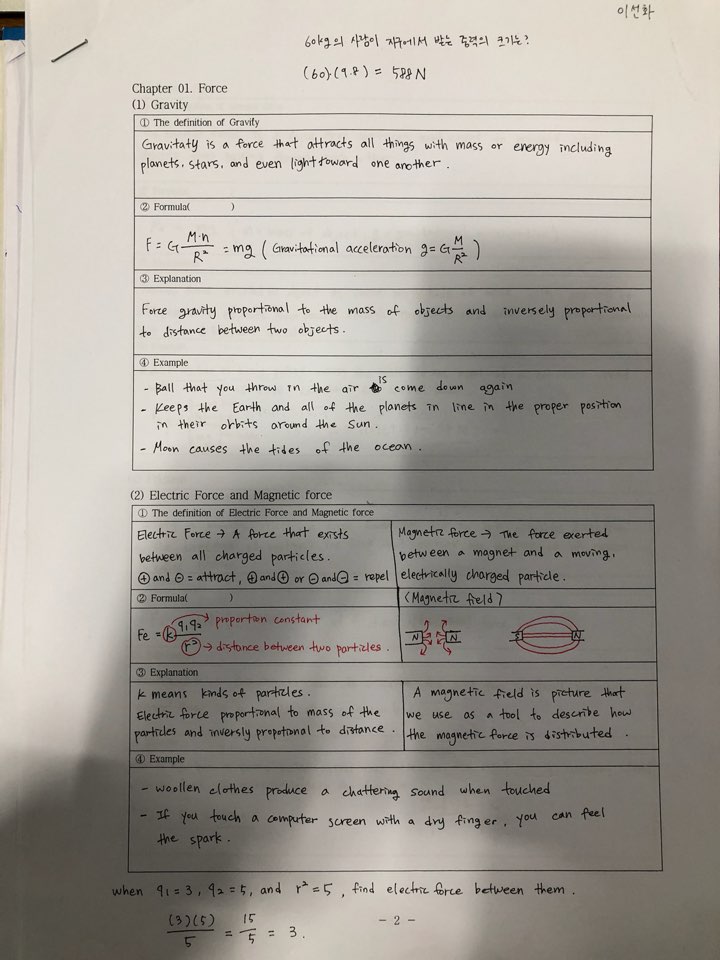 이선화
60kg의 사람이 지구에서 받는 중력의 크기는?
(60)(9.8) = 588N
Chapter 01. Force
(1) Gravity
① The definition of Gravity
Gravitaty is a force that attracts all things with mass or energy including
planets, stars, and even light toward one another.
② Formula( )
F = G M·n / R² = mg ( Gravitational acceleration g = G M / R² )
③ Explanation
Force gravity proportional to the mass of objects and inversely proportional
to distance between two objects.
④ Example
- Ball that you throw in the air is come down again
- Keeps the Earth and all of the planets in line in the proper position
in their orbits around the Sun.
- Moon causes the tides of the ocean.
(2) Electric Force and Magnetic force
① The definition of Electric Force and Magnetic force
Electric Force → A force that exists
between all charged particles.
⊕ and ⊖ = attract, ⊕ and ⊕ or ⊖ and ⊖ = repel
Magnetic force → The force exerted
between a magnet and a moving,
electrically charged particle.
② Formula( )
(Magnetic field)
Fe = k q₁q₂ / r²
→ proportion constant
→ distance between two particles.
N N
S N
③ Explanation
k means kinds of particles.
Electric force proportional to mass of the
particles and inversly propotional to distance.
A magnetic field is picture that
we use as a tool to describe how
the magnetic force is distributed.
④ Example
- woollen clothes produce a chattering sound when touched
- If you touch a computer screen with a dry finger, you can feel
the spark.
when q1 = 3, q2 = 5, and r² = 5, find electric force between them.
(3)(5) / 5 = 15 / 5 = 3.
- 2 -